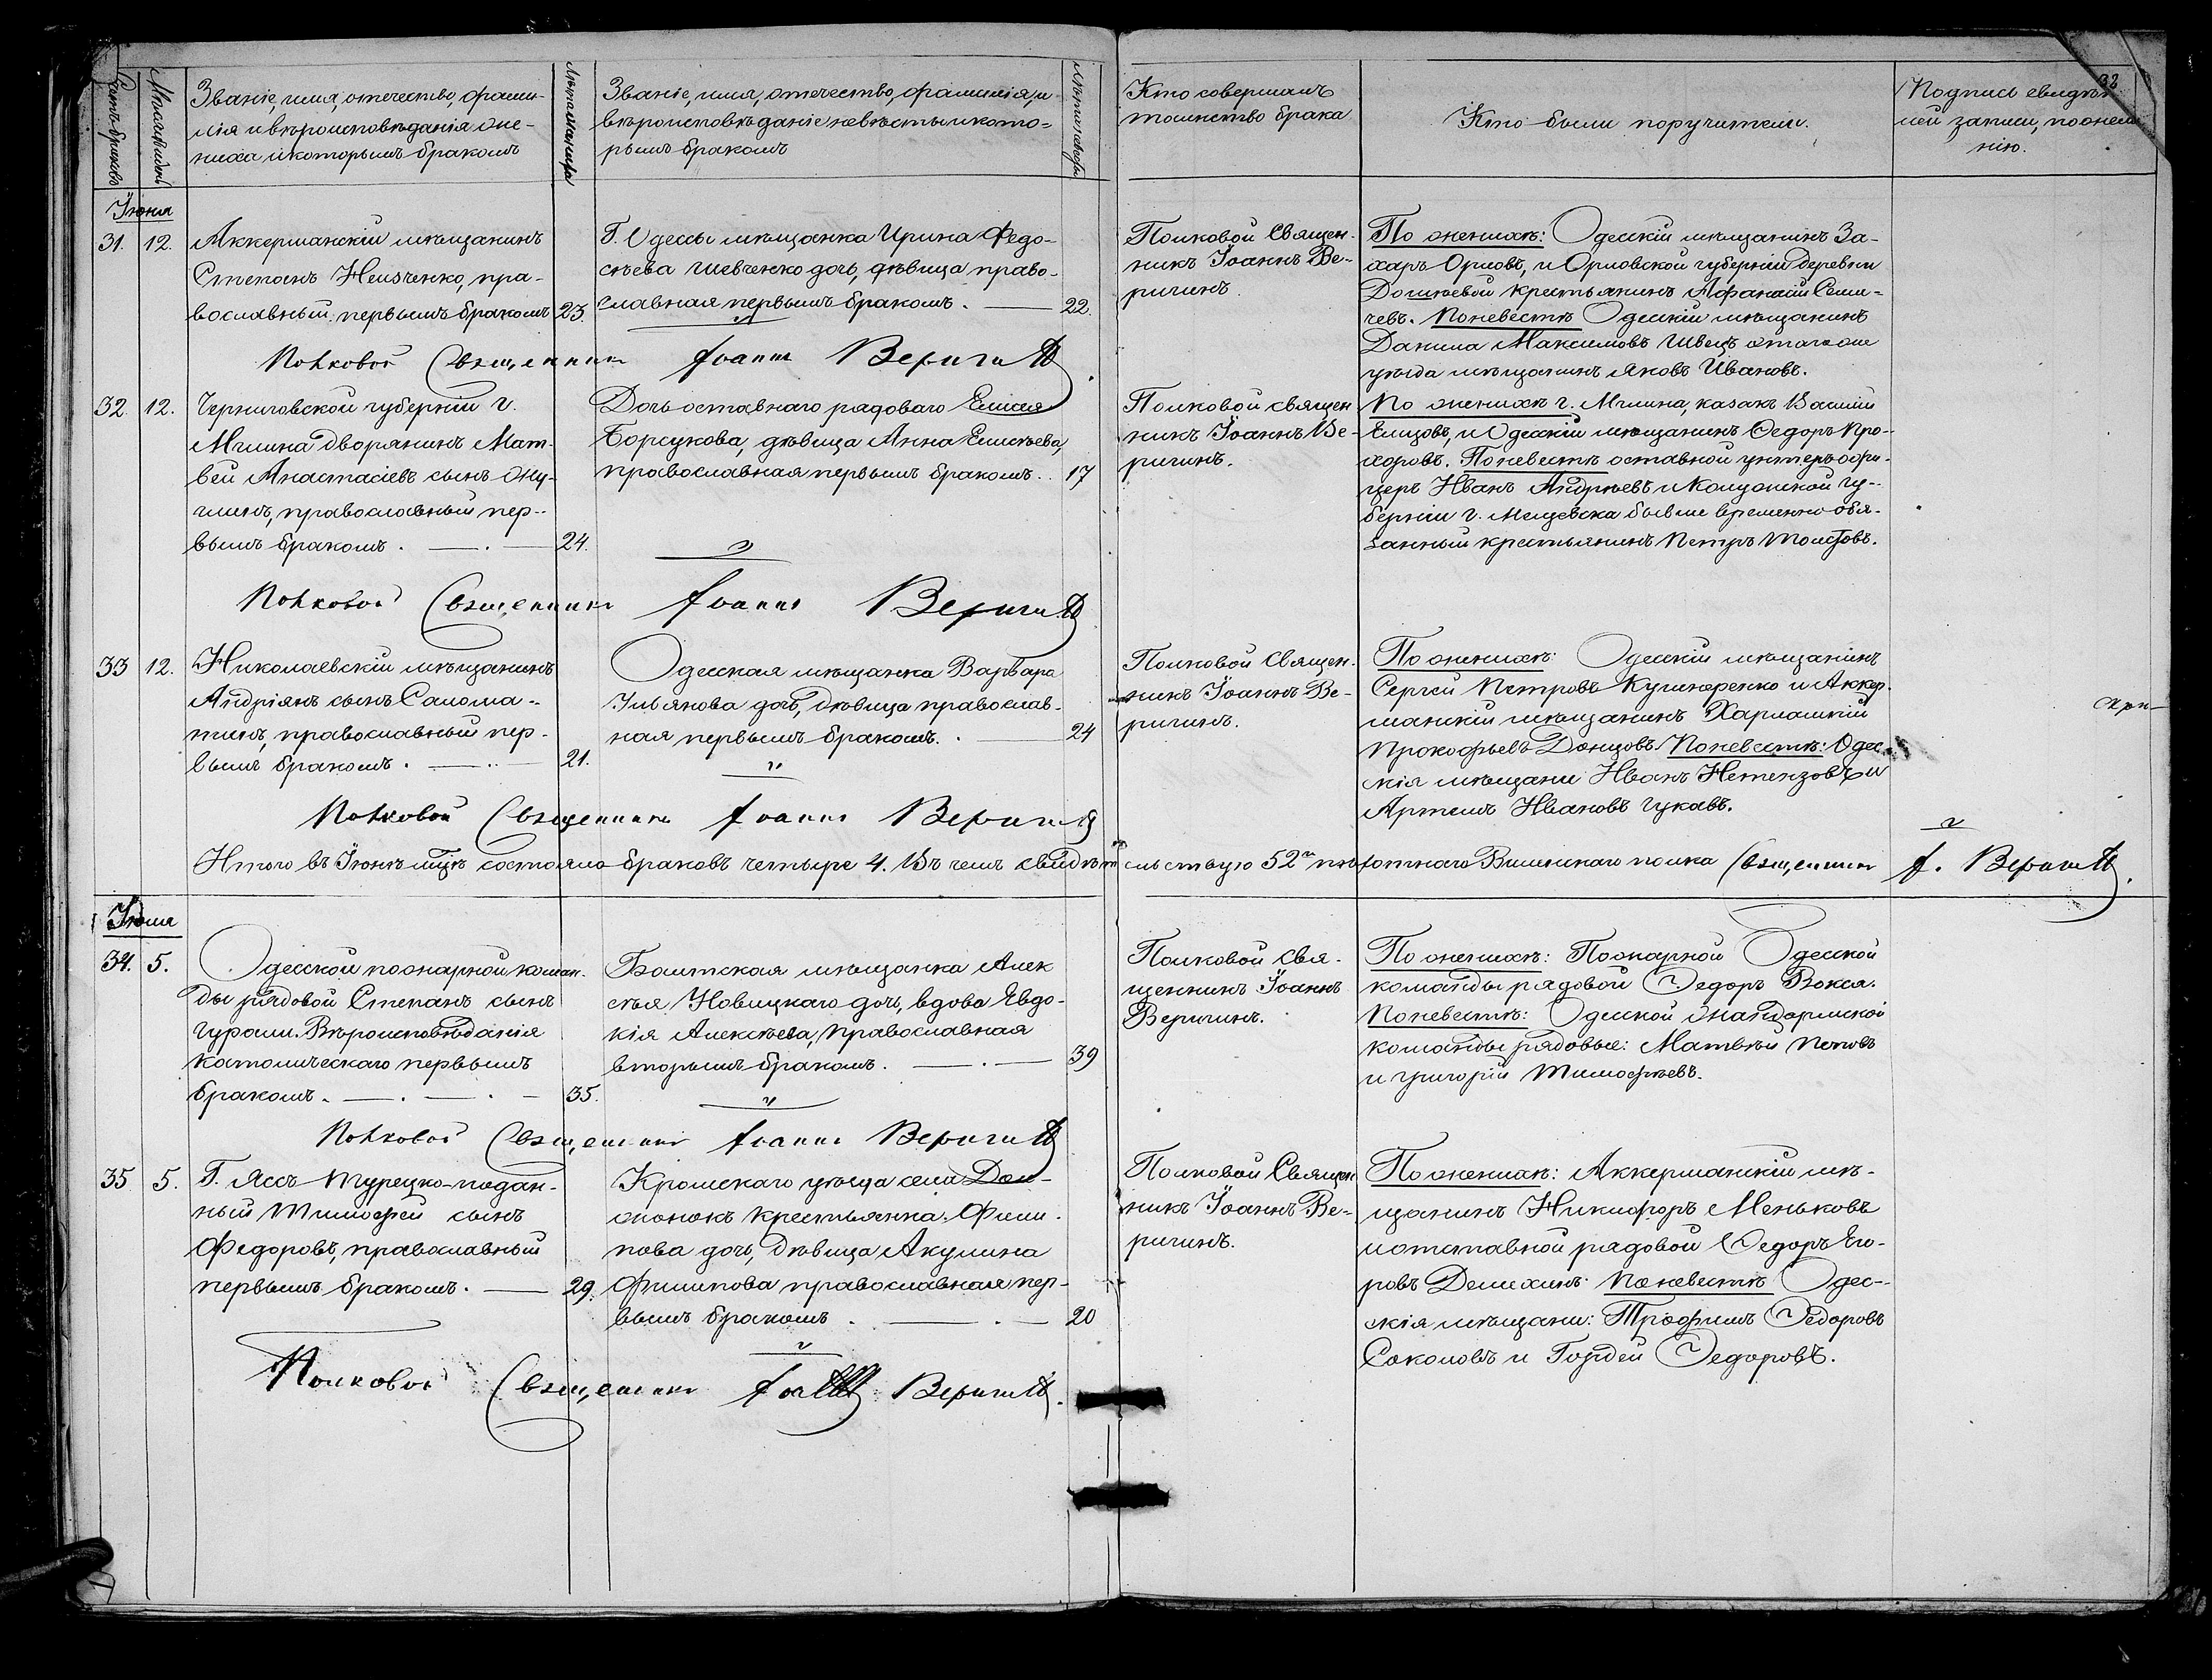 32
Счетъ браковъ
Мѣсяцъ и день
Званіе, имя, отечество, фами-
лія и вѣроисповѣданія же-
ниха и которымъ бракомъ
Лѣта жениха
Званіе, имя, отечество, фамилія, и
вѣроисповѣданіе невѣсты и кото-
рымъ бракомъ
Лѣта невѣсты
Кто совершалъ
таинство брака
Кто были поручители.
Подпись свидѣте
лей записи, по жела
нію.
Іюня
31. 12.
Аккерманскій мѣщанинъ
Степанъ пра-
вославный, первымъ бракомъ 23.
Г. Одессы мѣщанка Ирина Федо-
сѣева Шевченко дочь, дѣвица право-
славная первымъ бракомъ. 22.
Полковой Священ-
никъ Іоаннъ Ве-
ригинъ.
По женихѣ: Одесскій мѣщанинъ За-
харъ Орловъ, и Орловской губерніи деревни
крестьянинъ Афанасій Семи-
чевъ. По невестѣ Одесскій мѣщанинъ
Данила Максимовъ Швецъ того же
уѣзда мѣщанинъ Яковъ Ивановъ.
Полковой Священникъ Іоаннъ Веригинъ.
32. 12.
Черниговской губерніи г.
Мглина дворянинъ Мат-
вей Анастасіевъ сынъ
православный пер-
вымъ бракомъ. 24.
Дочь оставнаго рядоваго Елисея
Борсукова, дѣвица Анна Елисѣева,
православная первымъ бракомъ.. 17
Полковой священ
никъ Іоаннъ Ве-
ригинъ.
По женихѣ г. Мглина, казакъ Василій
Елицовъ, и Одесскій мѣщанинъ Федоръ Про-
хоровъ. По невестѣ оставной унтеръ офи-
церъ Иванъ Андрѣевъ и Калужской гу-
берніи г. Мещевска бывше временно обя-
занный крестьянинъ Петръ Толстовъ.
Полковой Священникъ Іоаннъ Веригинъ
33 12.
Николаевскій мѣщанинъ
Андріянъ сынъ Салома-
тинъ, православный пер-
вымъ бракомъ. 21.
Одесская мѣщанка Варвара
Ульянова дочь, дѣвица православ-
ная первымъ бракомъ. 24
Полковой Священ-
никъ Іоаннъ Ве-
ригинъ.
По женихѣ: Одесскій мѣщанинъ
Сергей Петровъ Кушнеренко и Аккер-
манскій мѣщанинъ Харлампій
Прокофьевъ Донцовъ. По невестѣ: Одес-
скія мѣщани Иванъ и
Артемъ Ивановъ Чукавъ.
Полковой Священникъ Іоаннъ Веригинъ
Итого въ Іюнѣ мцѣ состояло браковъ четыре 4. Въ чемъ свидѣтельствую 52го пѣхотнаго Виленскаго полка Священникъ І. Веригинъ.
Іюля
34. 5.
Одесской пожарной коман-
ды рядовой Степанъ сынъ
Гурали. Вѣроисповѣданія
католическаго первымъ
бракомъ. 35.
Балтская мѣщанка Алек
сѣя Новицкаго дочь, вдова Евдо-
кія Алексѣева, православная
вторымъ бракомъ. 39
Полковой свя-
щенникъ Іоаннъ
Веригинъ.
По женихѣ: Пожарной Одесской
команды рядовой Федоръ Вокса.
По невестѣ: Одесской жандармской
команды рядовые: Матвѣй Поповъ
и Григорій Тимофѣевъ.
Полковой Священникъ Іоаннъ Веригинъ
35 5.
Г. Яссъ Турецко-подан-
ный Тимофей сынъ
Федоровъ, православный
первымъ бракомъ. 29.
Кромскаго уѣзда села
крестьянка Фили-
пова дочь, дѣвица Акулина
Филипова православная пер-
вымъ бракомъ. 20
Полковой Священ
никъ Іоаннъ Ве-
ригинъ.
По женихѣ: Аккерманскій мѣ-
щанинъ Никифоръ Меньковъ
и отставной рядовой Федоръ Его-
ровъ Демехинъ. По невестѣ Одес-
скія мѣщани: Трофимъ Федоровъ
Соколовъ и Гордей Федоровъ.
Полковой Священникъ Веригинъ.